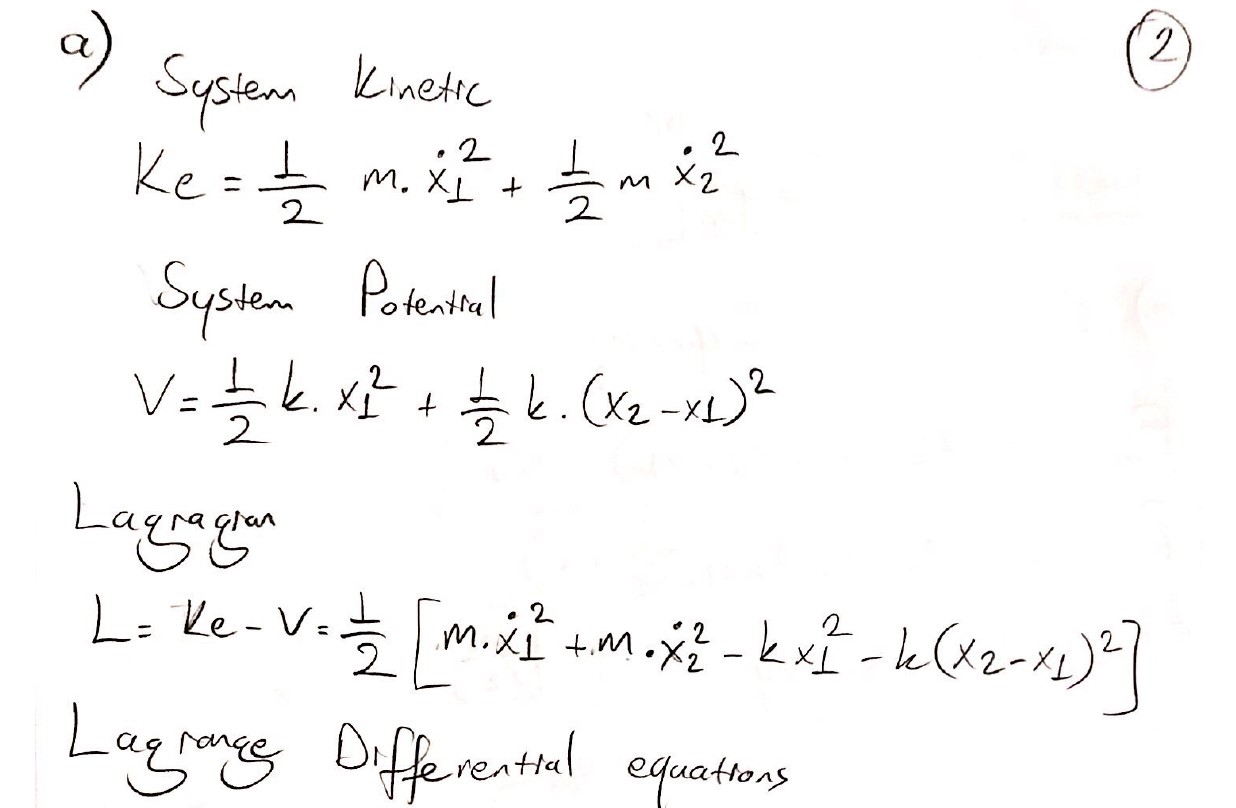 a) ②
System Kinetic
Ke = 1/2 m. ẋ1² + 1/2 m ẋ2²
System Potential
V = 1/2 k. x1² + 1/2 k. (x2 - x1)²
Lagragian
L = Ke - V = 1/2 [m. ẋ1² + m. ẋ2² - k x1² - k(x2 - x1)²]
Lagrange Differential equations